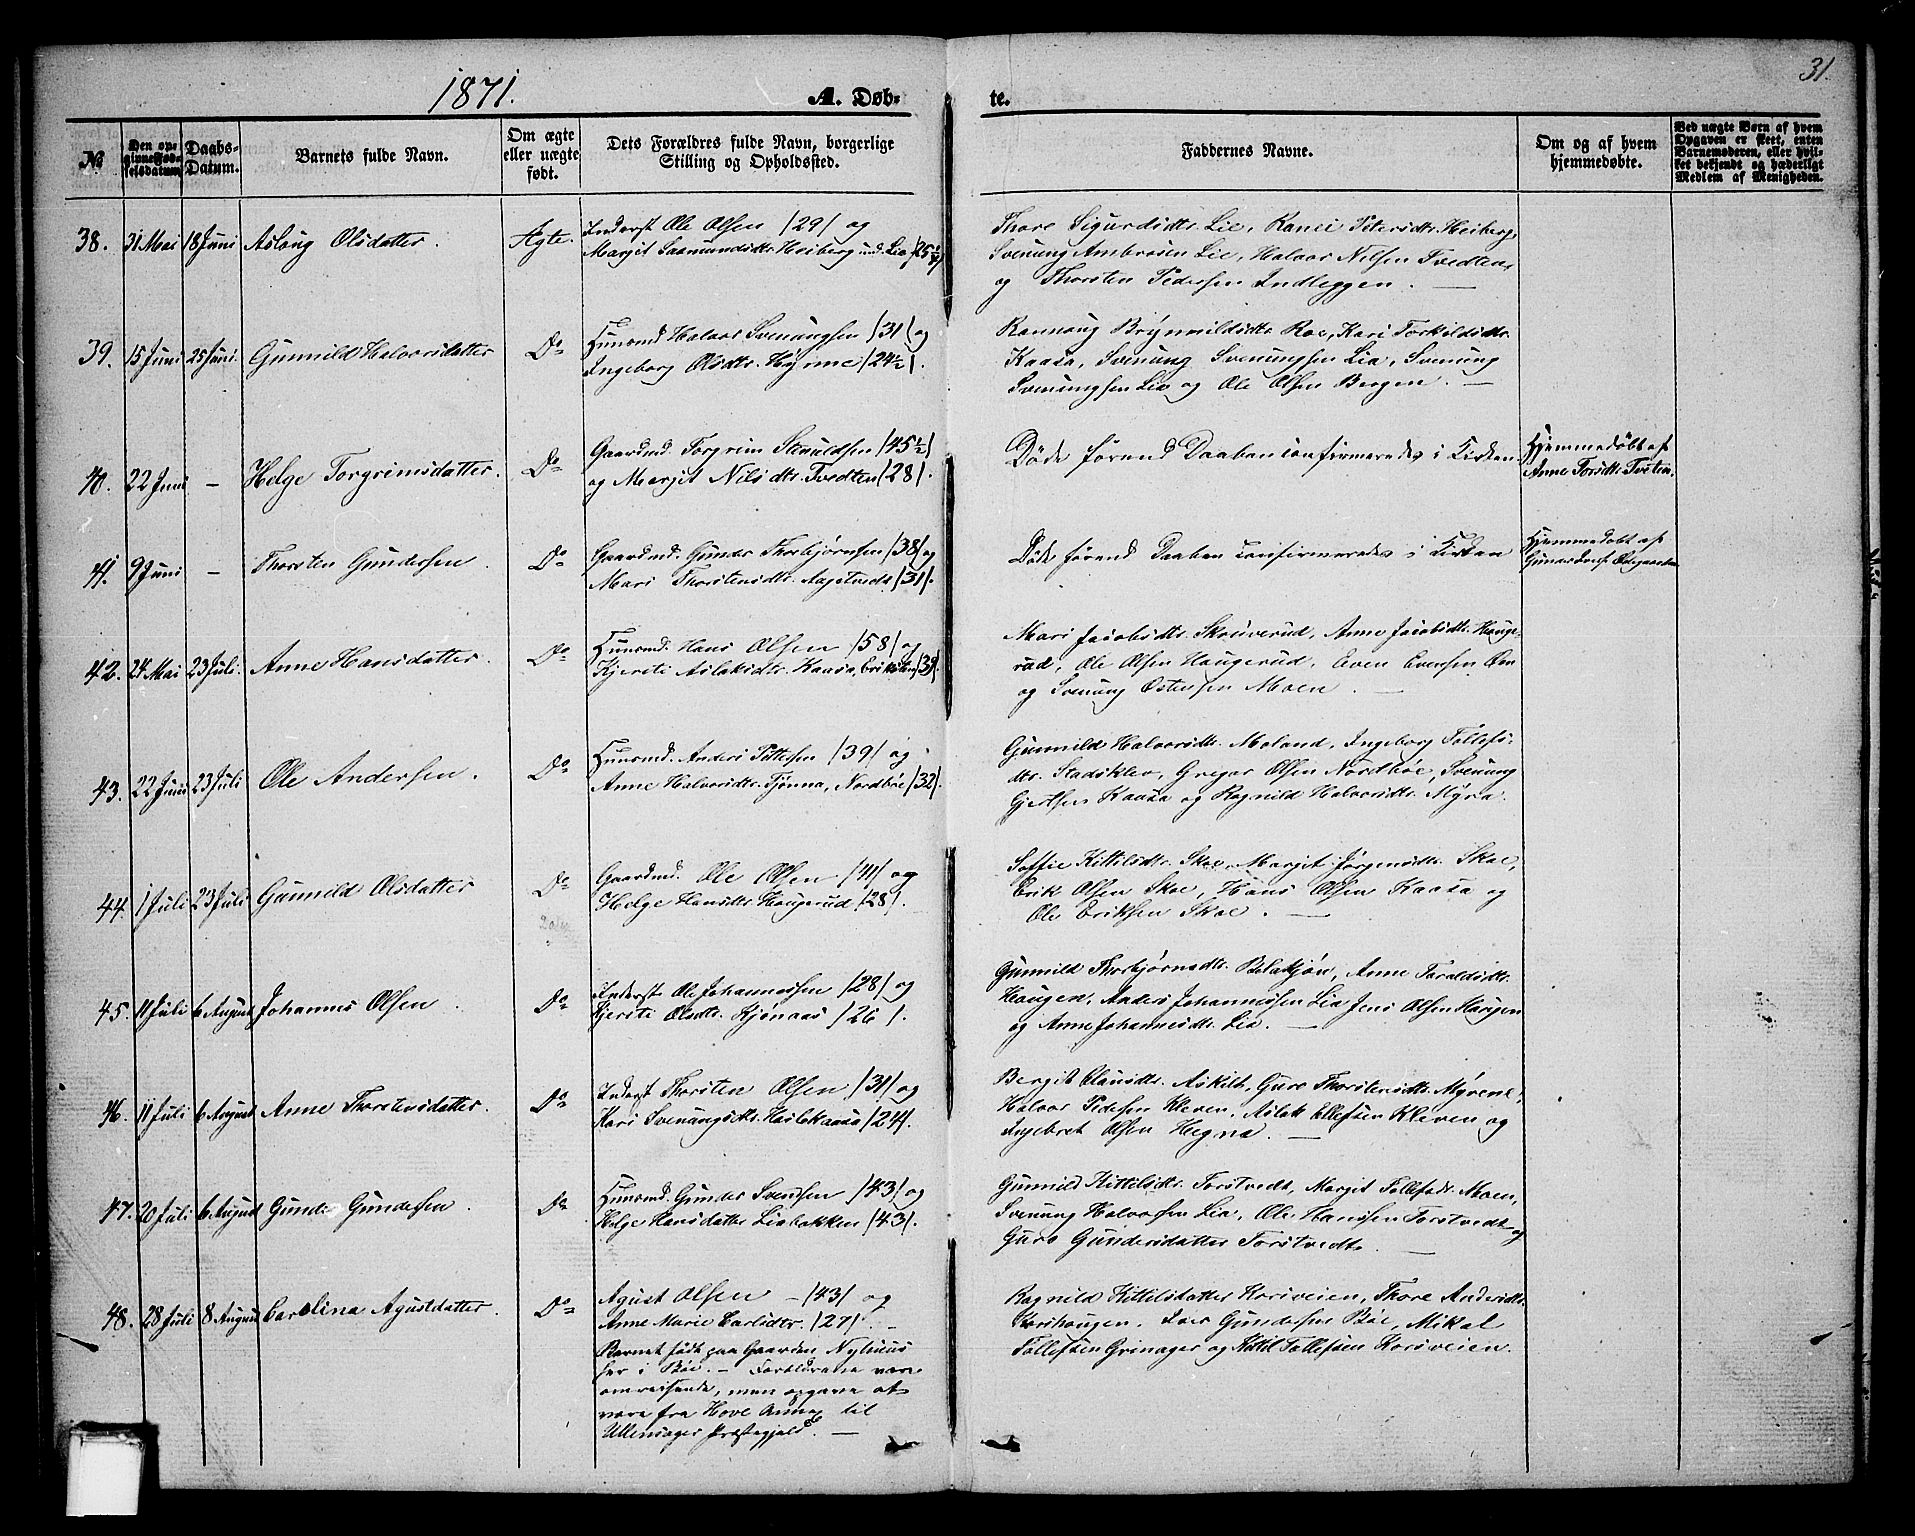 1871.
A. Døb-
te.
31.
№
Den op-
givne Fød-
selsdatum.
Daabs-
Datum.
Barnets fulde Navn.
Om ægte
eller uægte
født.
Dets Forældres fulde Navn, borgerlige
Stilling og Opholdssted.
Faddernes Navne.
Om og af hvem
hjemmedøbte.
Ved uægte Børn af hvem
Opgaven er skeet, enten
Barnemoderen, eller hvil-
ket bekjendt og hæderligt
Medlem af Menigheden.
38. 31 Mai 18 Juni Aslaug Olsdatter. Ægte.
Inderst Ole Olsen /29/ og
Margit Saamundsdtr. Heiberg und. Lia
Thore Sigurdsdtr. Lie, Ranei Petersdtr. Heiberg,
Svenung Ambrosen Lie, Halvor Nilsen Tvedten,
og Thorsten Pedersen Indleggen.
39. 15 Juni 25 Juni. Gunnild Halvorsdatter Do
Huusmd. Halvor Svenungsen /31/ og
Ingeborg Olsdtr. Hynne /24½/.
Rannaug Brynnildsdtr. Roe, Kari Torkildsdtr.
Kaasa, Svenung Svenungsen Lia, Svenung
Svenungsen Lia og Ole Olsen Bergen.
40. 22 Juni - Helge Torgrimsdatter. Do
Gaardmd. Torgrim Stenuldsen /45½/
og Margit Nilsdtr. Tvedten /28/.
Døde førend Daaben confirmeredes i Kirken
Hjemmedøbt af
Anne Torsdtr. Torstein.
41. 9 Juni - Thorsten Gundersen Do
Gaardmd. Gunder Thorbjørnsen /38/ og
Mari Thorstensdtr. Aagetvedt /31/.
Døde førend Daaben confirmeredes i Kirken
Hjemmedøbt af
Gunder
42. 24 Mai 23 Juli. Anne Hansdatter. Do
Huusmd. Hans Olsen /58/ og
Kjersti Aslaksdtr. Kaasa, Eriksten /39/.
Mari Jacobsdtr. Skouverud, Anne Jacobsdtr. Hauge-
rud, Ole Olsen Haugerud, Even Evensen Om
og Svenung Østensen Moen.
43. 22 Juni 23 Juli Ole Andersen. Do
Huusmd. Anders Kittelsen /39/ og
Anne Halvorsdtr. Tjønna, Nordbøe /32/.
Gunnild Halvorsdtr. Moland, Ingeborg Tollefs-
dtr. Stadsklev, Gregar Olsen Nordbøe, Svenung
Gjertsen Kaasa og Ragnild Halvorsdtr. Myra.
44. 1 Juli 23 Juli Gunnild Olsdatter Do
Gaardmd. Ole Olsen /41/ og
Helge Hansdtr. Haugerud /28/.
Soffie Kittilsdtr. Skoe, Margit Jørgensdtr. Skoe,
Erik Olsen Skoe, Hans Olsen Kaasa og
Ole Eriksen Skoe.
45. 11 Juli 6 August Johannes Olsen. Do
Inderst Ole Johannessen /28/ og
Kjersti Olsdtr. Kjønaas /26/.
Gunnild Thorbjørnsdtr. Anne Taraldsdtr.
Haugen, Anders Johannessen Lia, Jens Olsen Haugen
og Anne Johannesdtr. Lia.
46. 11 Juli 6 August Anne Thorstensdatter. Do
Inderst Thorsten Olsen /31/ og
Kari Svenungsdtr. Heilekaasa /24/.
Bergit Clausdtr. Askilt, Guro Thorstensdtr. Myrene,
Halvor Pedersen Kleven, Aslak Ellefsen Kleven og
Ingebret Olsen Hegna.
47. 20 Juli 6 August Gunder Gundersen. Do
Huusmd. Gunder Svendsen /43/ og
Helge Hansdatter Liabakken /43/.
Gunnild Kittilsdtr. Torstvedt, Margit Tollefsdtr. Moen,
Svenung Halvorsen Lia, Ole Hanssen Torstvedt og
Guro Gundersdatter Torstvedt.
48. 28 Juli 8 August Carolina Agustdatter. Do
Agust Olsen - /43/ og
Anne Marie Carlsdtr. /27/. -
Barnet født paa Gaarden Nyhuus
her i Bøe. - Forældrene vare
omreisende, men opgave at
vare fra Hove Annex til
Ullensager Præstegjeld.
Ragnild Kittelsdatter Korsveien, Thore Andersdtr.
Korshaugen, Lars Gundersen Bøe, Mikal
Tollefsen Grinager og Kittil Tollefsen Korsveien.